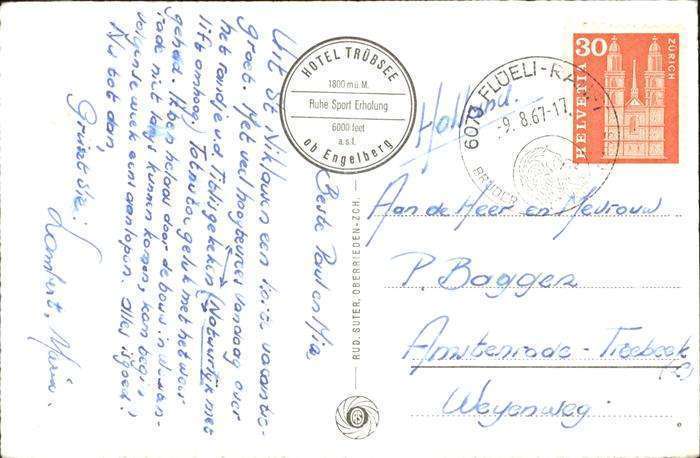 Beste Paul en Mia,
Uit St Niklausen een fijne vacantie-
groet. Met veel hoogtevrees vandaag over
het randje v.d. Titlis gekeken (Natuurlijk met
lift omhoog) Tot nu toe geluk met het weer
gehad. Ik ben helaas door de bouw in
niet langs kunnen komen, kom begin
volgende week eens aanlopen. Alles is goed!
Nu tot dan,
Groetsie:
Lambert, Maria.
HOTEL TRÜBSEE
1800 m ü. M.
Ruhe Sport Erholung
6000 feet
a.s.l.
ob Engelberg
RUD. SUTER, OBERRIEDEN-ZCH.
Holland.
6073 FLÜELI-RANFT
-9.8.67-17
BRUDER
30
HELVETIA
ZÜRICH
Aan de Heer en Mevrouw
P. Baggen
Amstenrade-Treebeek
(L)
Weyenweg